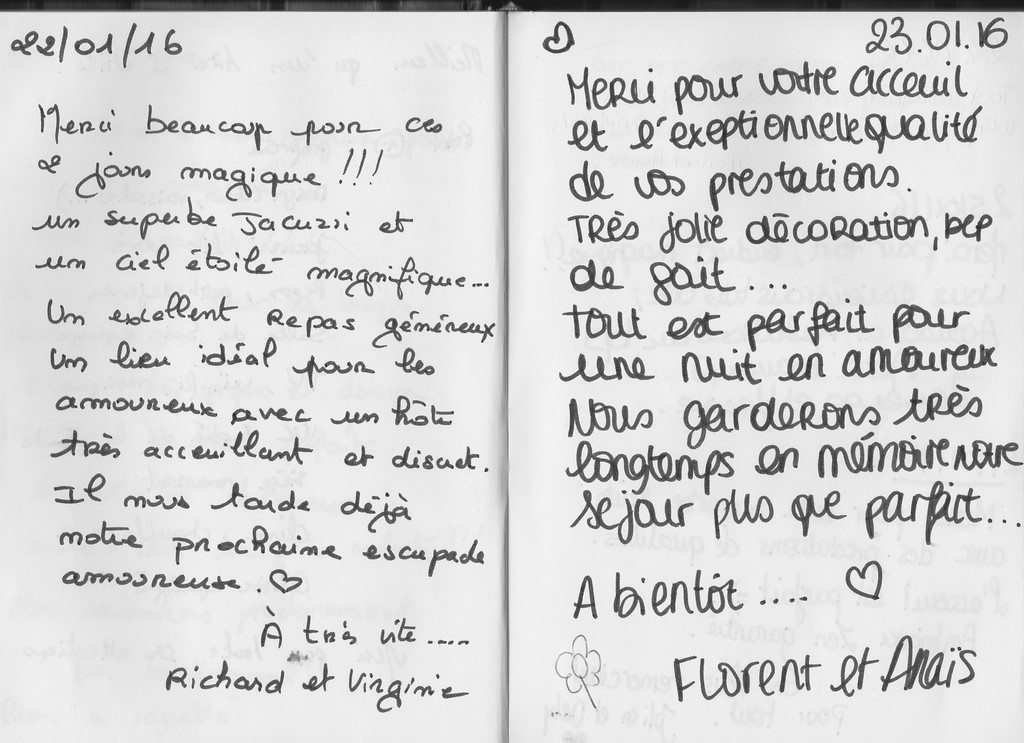 22/01/16
Merci beaucoup pour ces
2 jours magique !!!
un superbe Jacuzzi et
un ciel étoilé magnifique...
Un excellent repas généreux
Un lieu idéal pour les
amoureux avec un hôte
très acceuillant et discret.
Il nous tarde déjà
notre prochaine escapade
amoureuse. ♡
À très vite.....
Richard et Virginie
23.01.16
Merci pour votre acceuil
et l'exeptionnelle qualité
de vos prestations.
Très jolie décoration, pep
de goût....
Tout est parfait pour
une nuit en amoureux
Nous garderons très
longtemps en mémoire notre
séjour plus que parfait...
A bientôt ..... ♡
Florent et Anaïs